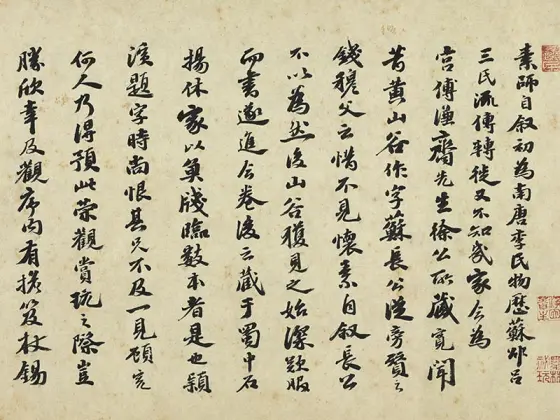 素師自叙初為南唐李氏物歷蘇邵呂
三氏流傳轉徙又不知幾家今為
宮傅謙齋先生徐公所藏寬聞
昔黃山谷作字蘇長公從旁贊之
錢穆父云惜不見懷素自叙長公
不以為然後山谷獲見之始深歎服
而書遂進今卷後云藏于蜀中石
揚休家以魚牋臨數本者是也潁
濱題字時尚恨其兄不及一見顧寬
何人乃得預此榮觀賞玩之際豈
勝欣幸及觀序内有擔笈杖錫